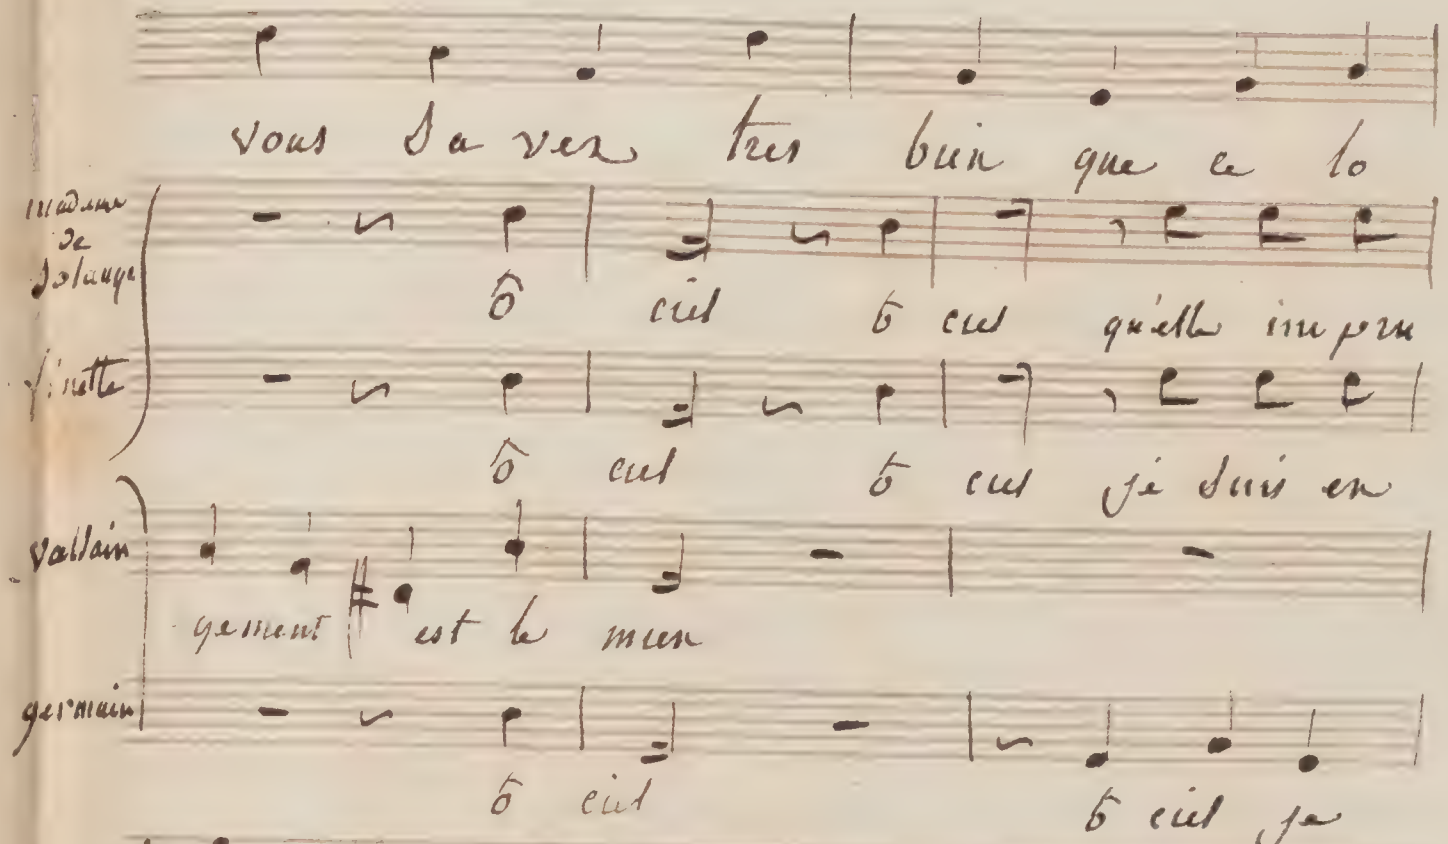 vous sa vez tres bien que ce lo
madame
de
Solange
ô ciel ô ciel qu'elle impru
finette
ô ciel ô ciel je suis en
Vallain
gement est le mien
germain
ô ciel ô ciel je